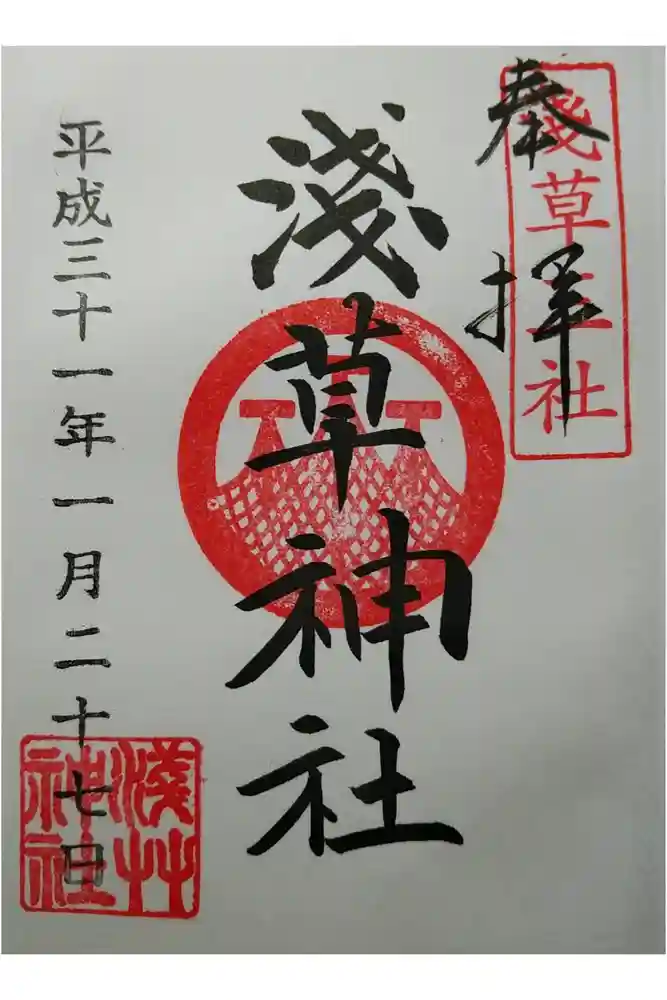 奉拝
淺草三社
淺草神社
平成三十一年一月二十七日
淺草
神社